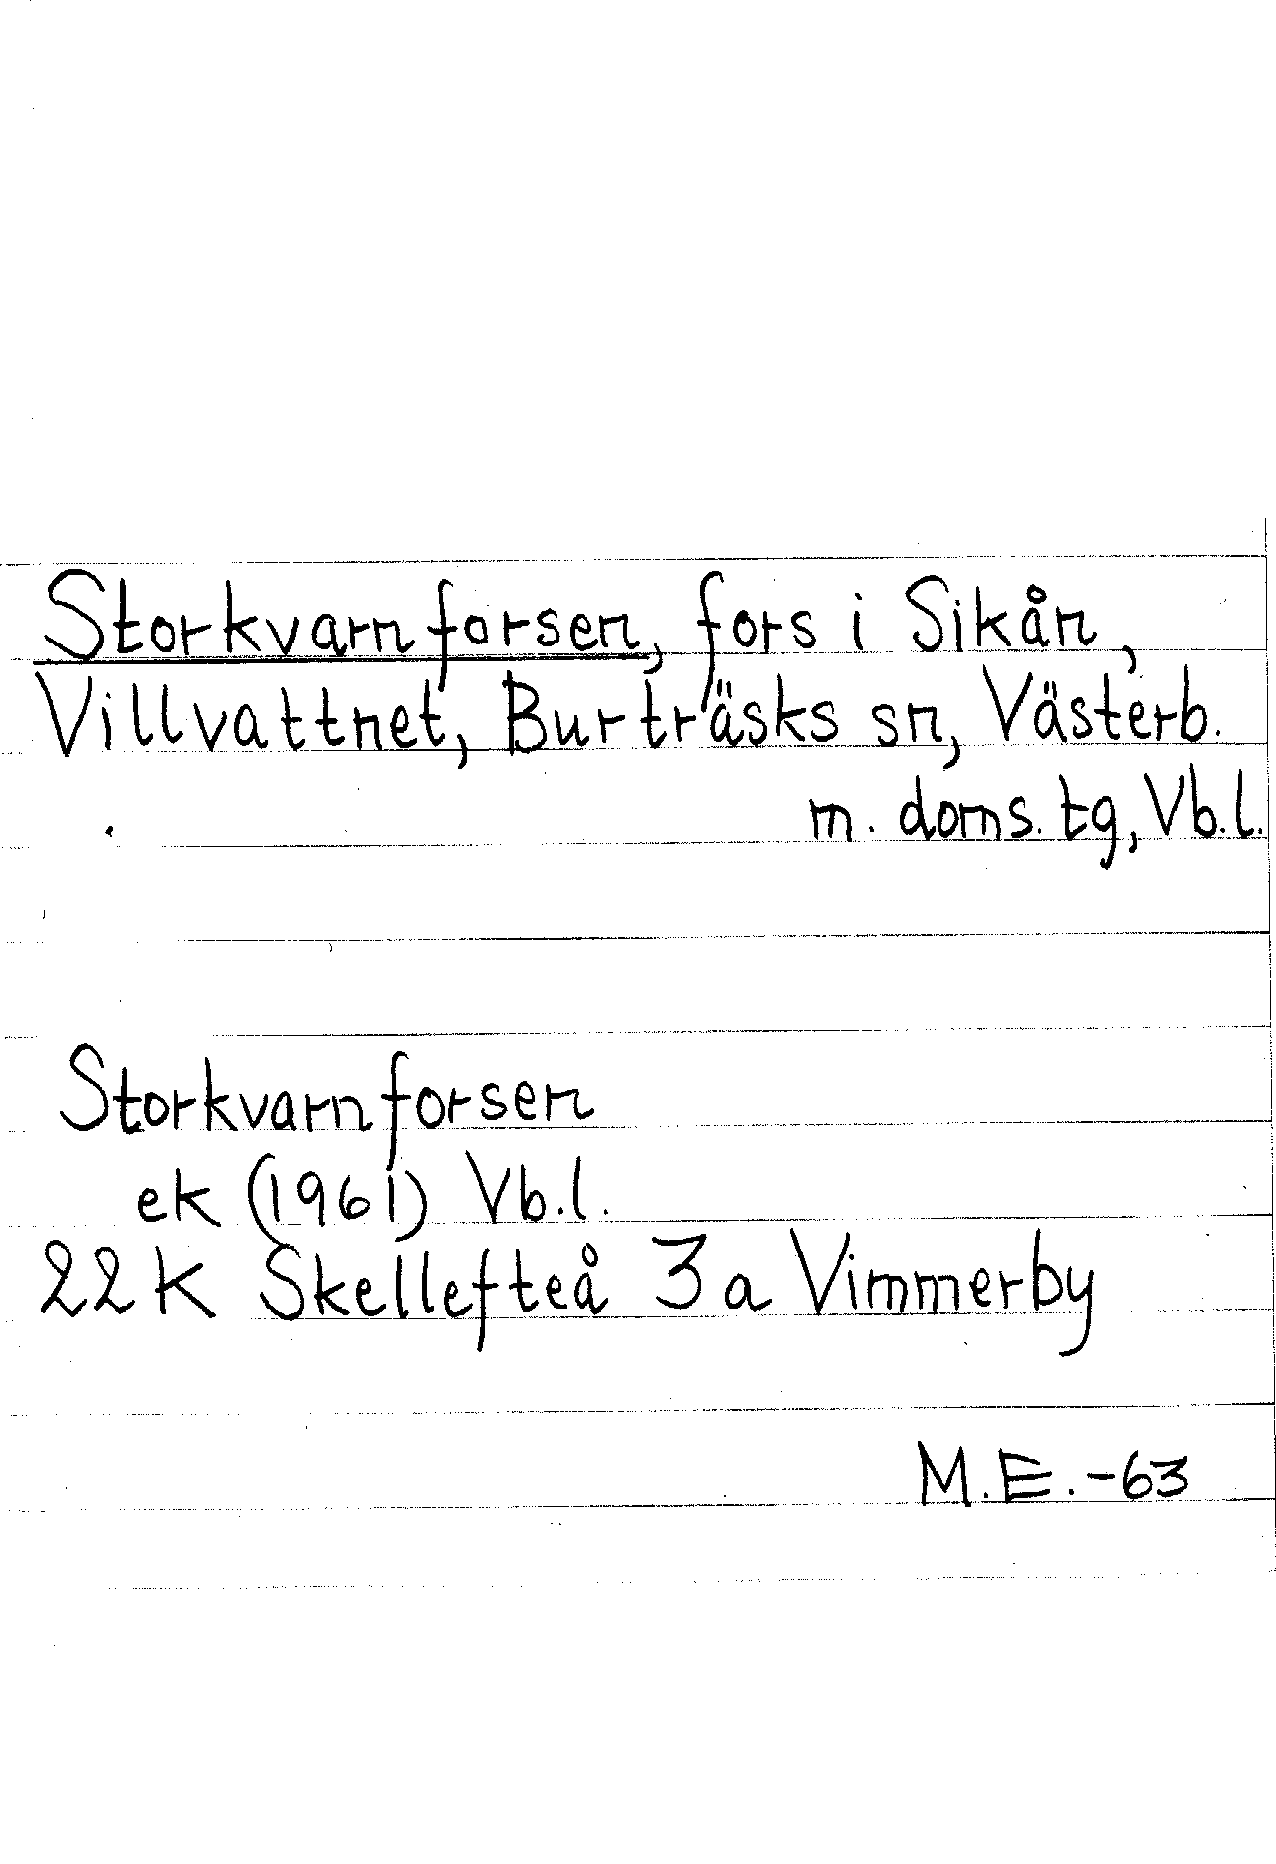 Storkvarnforsen, fors i Sikån,
Villvattnet, Burträsks sn, Västerb.
m. doms. tg, Vb.l.
Storkvarnforsen
ek (1961) Vb.l.
22K Skellefteå 3a Vimmerby
M.E.-63